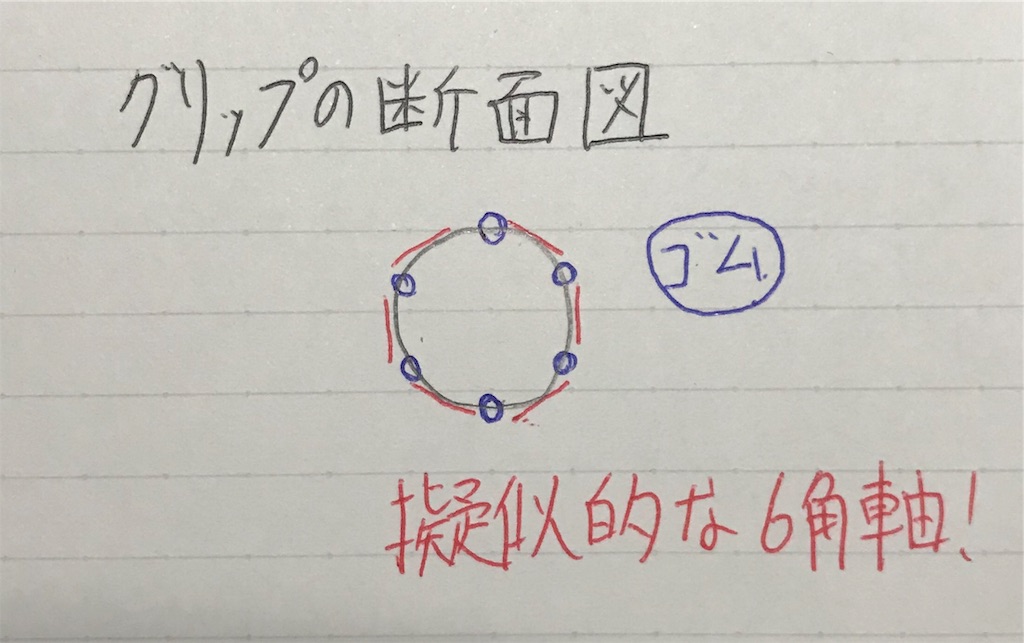 グリップの断面図
ゴム
擬似的な6角軸!